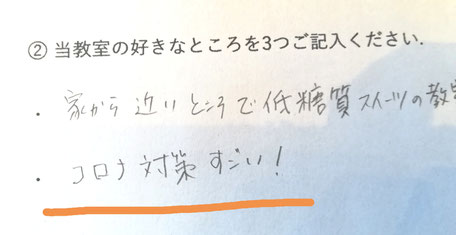 ② 当教室の好きなところを3つご記入ください.
・ 家から近いところで低糖質スイーツの教
・ コロナ対策すごい!